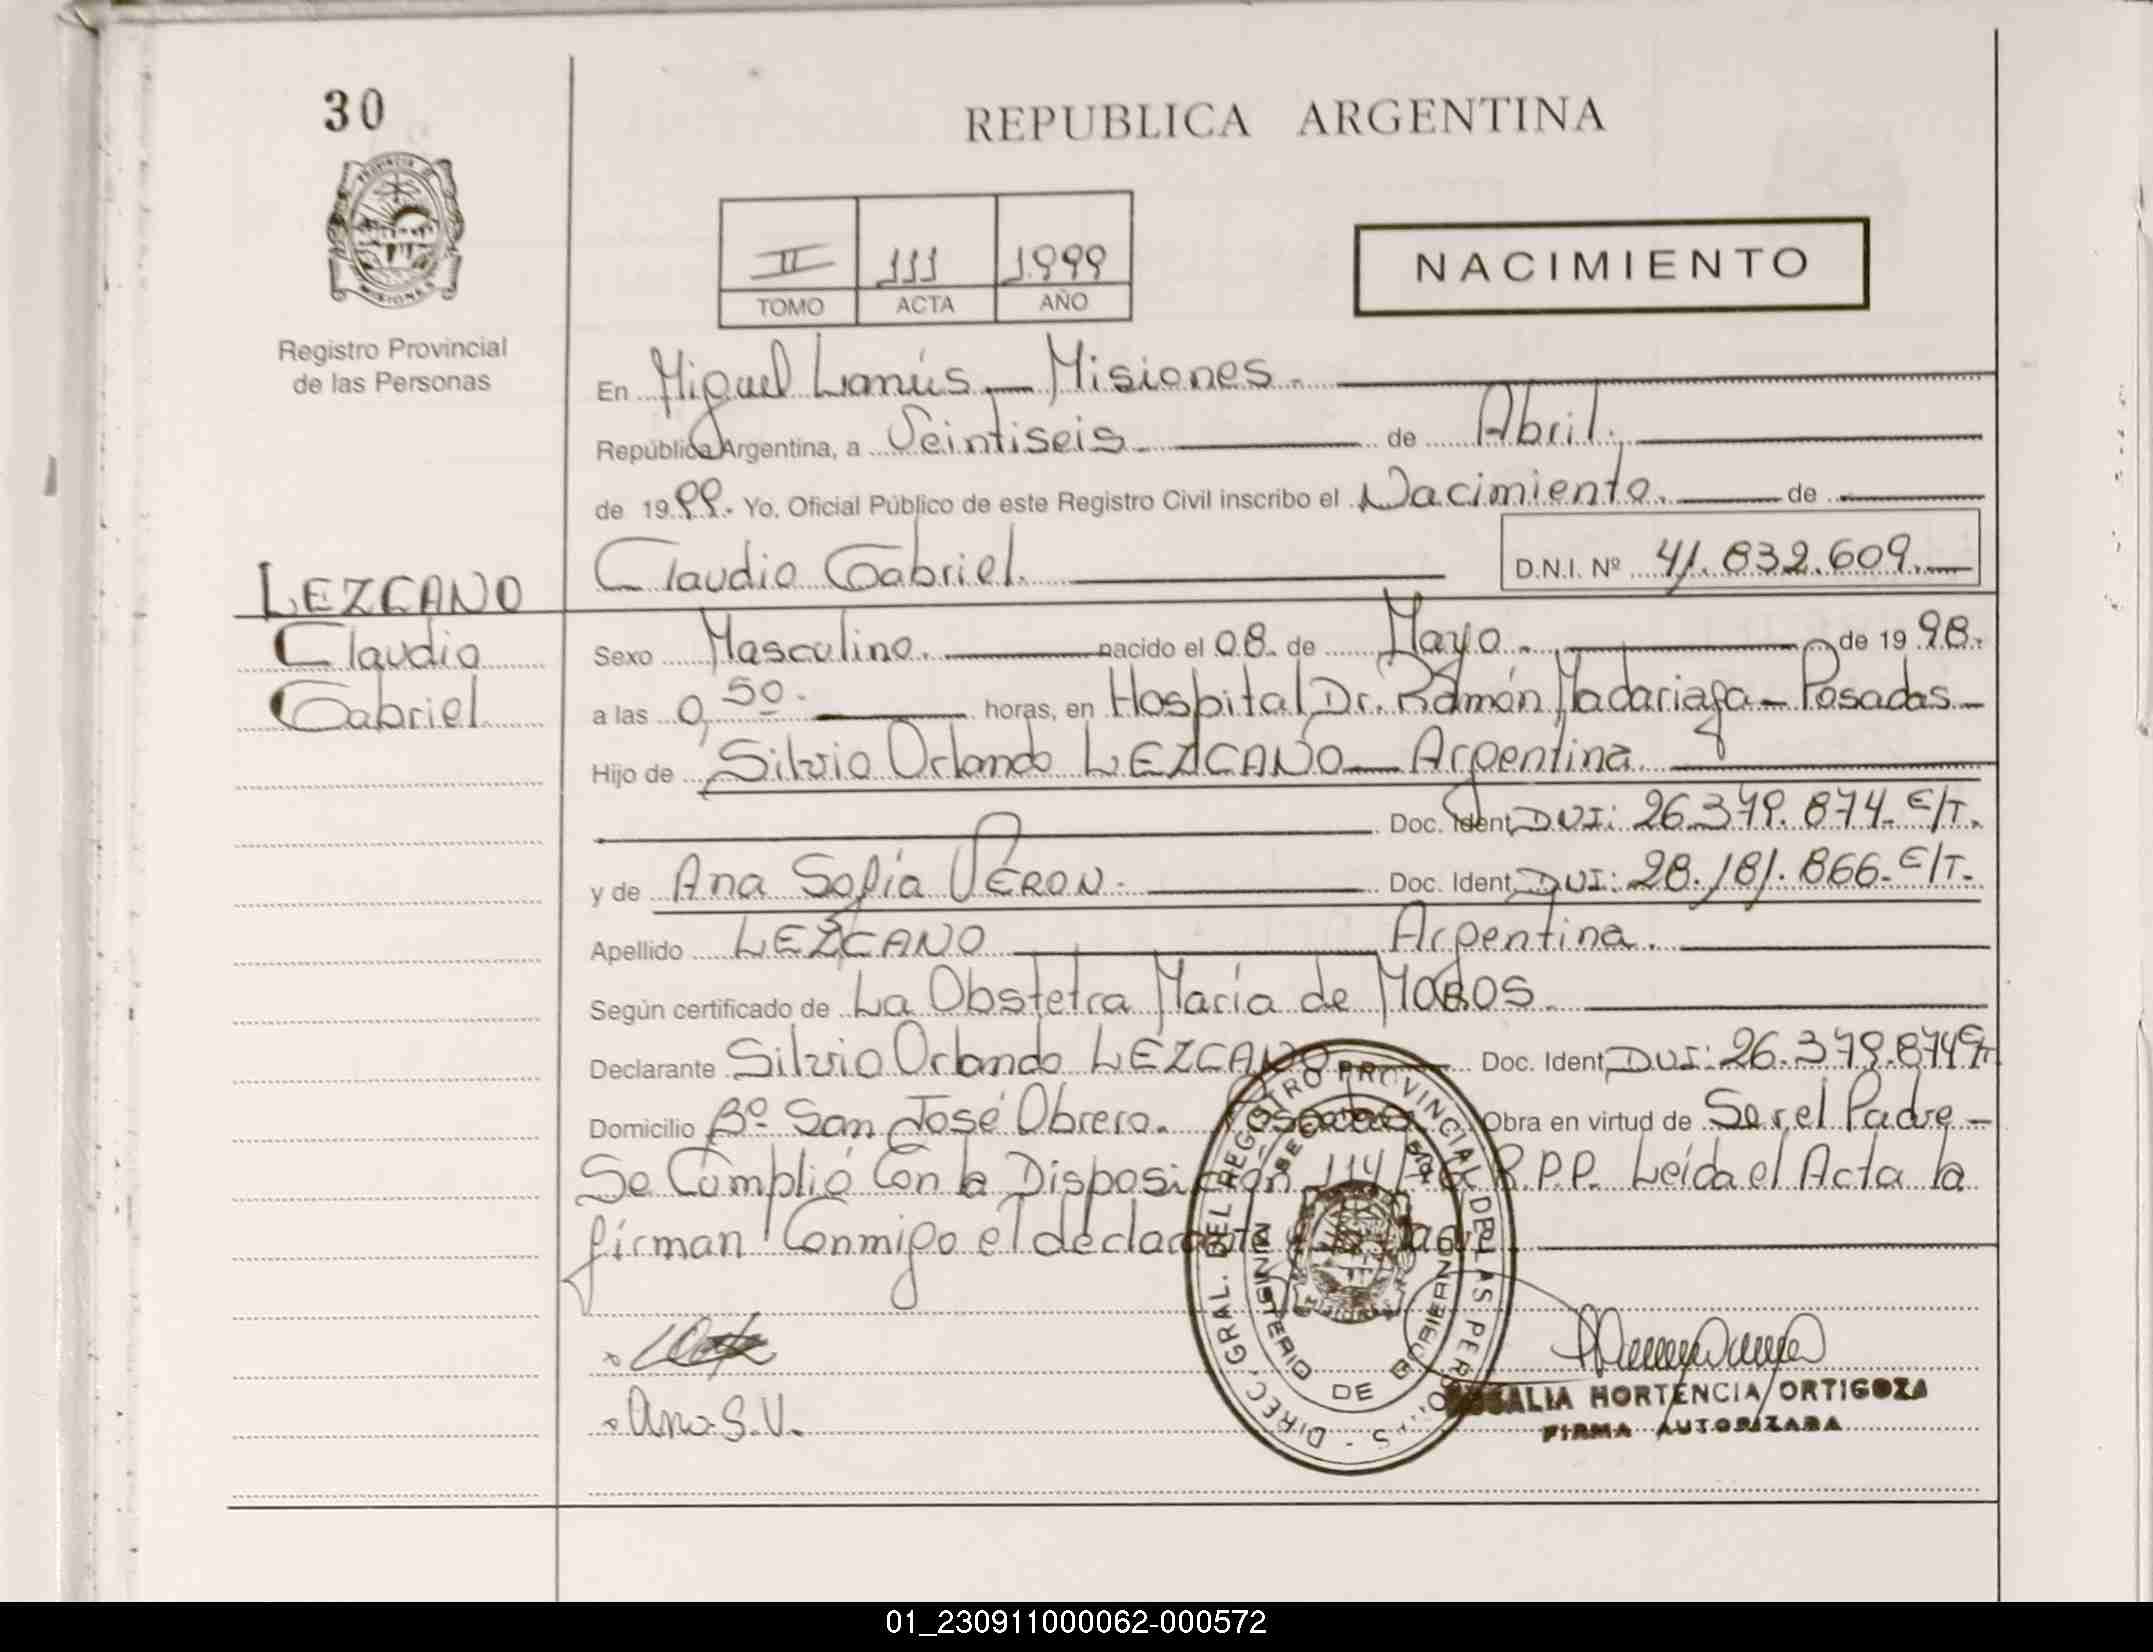 30
REPUBLICA ARGENTINA
II 111 1999
TOMO ACTA AÑO
NACIMIENTO
PROVINCIA DE
MISIONES
Registro Provincial
de las Personas
En Miguel Lanús — Misiones.
República Argentina, a Veintiseis de Abril.
de 1999. Yo, Oficial Público de este Registro Civil inscribo el Nacimiento. de
Claudio Gabriel. D.N.I. Nº 41.832.609.
LEZCANO
Claudio
Gabriel
Sexo Masculino. nacido el 08. de Mayo. de 1998.
a las 0,50. horas, en Hospital Dr. Ramón Madariaga - Posadas -
Hijo de Silvio Orlando LEZCANO — Argentina.
Doc. Ident. DUI: 26.379.874. E/T.
y de Ana Sofía VERON. Doc. Ident. DUI: 28.181.866. E/T.
Apellido LEZCANO Argentina.
Según certificado de La Obstetra María de
Declarante Silvio Orlando LEZCANO Doc. Ident. DUI: 26.379.874 E/T.
Domicilio Bº San José Obrero. Posadas Obra en virtud de Ser el Padre -
Se Cumplió Con la Disposición 114/ R.P.P. Leída el Acta la
firman Conmigo el declarante y la Madre
Ana S.V.
DIREC. GRAL. DEL REGISTRO PROVINCIAL DE LAS PERSONAS -
MINISTERIO DE GOBIERNO
ROSALIA HORTENCIA ORTIGOZA
FIRMA AUTORIZADA
01_230911000062-000572